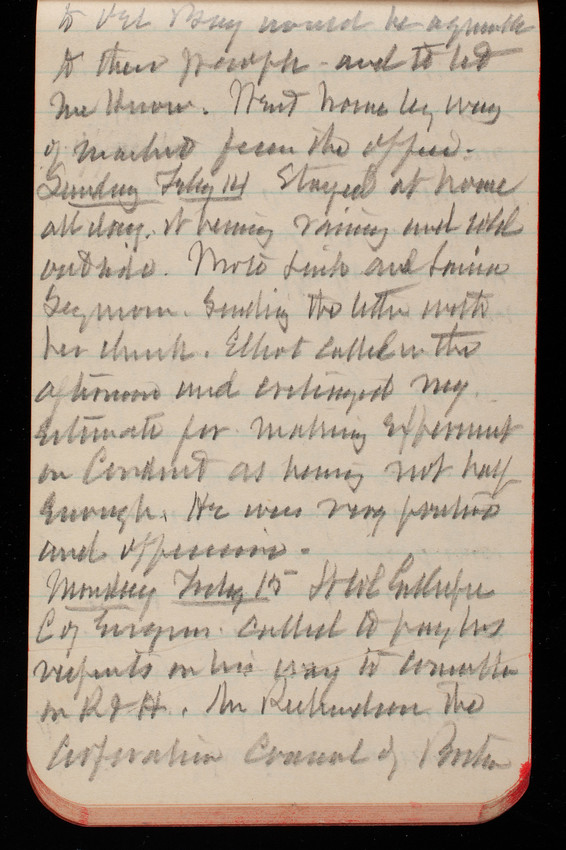 to see Bsay would be agreeable
to their people - and to let
me know. Went home by way
of market from the office.
Sunday Feby 14 Stayed at home
all day. it being rainy and cold
outside. Wrote and Louisa
Seymour. Sending the letter with
her check. Elliot called in the
afternoon and criticized my
Estimate for making Experiment
on Conduit as being not half
Enough. He was very positive
and offensive.
Monday Feby 15 Lt Col Gillespie
C of Engrs. called to pay his
respects on his way to committee
on R & H. Mr Richardson the
Corporation Counsel of Boston